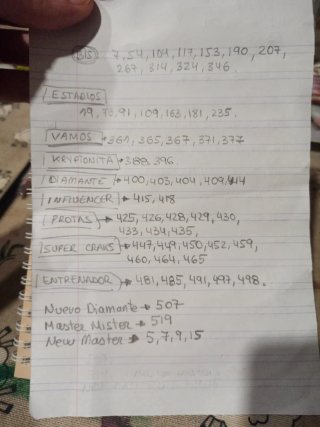 BIS 7, 54, 101, 117, 153, 190, 207,
267, 314, 324, 346.
ESTADIOS
19, 73, 91, 109, 163, 181, 235.
VAMOS → 361, 365, 367, 371, 377
KRYPTONITA → 388, 396.
DIAMANTE → 400, 403, 404, 409, 414
INFLUENCER → 415, 418
PROTAS → 425, 426, 428, 429, 430,
433, 434, 435,
SUPER CRAKS → 447, 449, 450, 452, 459,
460, 464, 465
ENTRENADOR → 481, 485, 491, 497, 498.
Nuevo Diamante → 507
Master Mister → 519
New Master → 5, 7, 9, 15